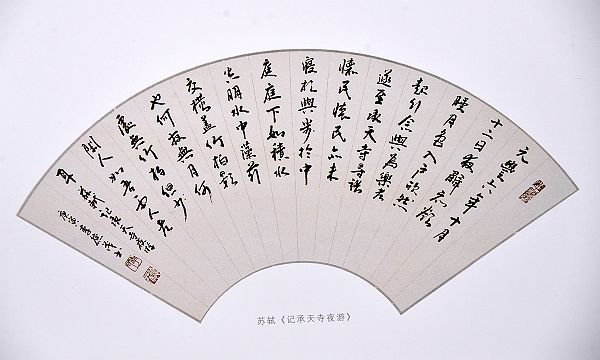 元豐六年十月
十二日夜解衣欲
睡月色入戶欣然
起行念無為樂者
遂至承天寺尋張
懷民懷民亦未
寢相與步於中
庭庭下如積水
空明水中藻荇
交橫蓋竹柏影
也何夜無月何
處無竹柏但少
閒人如吾兩人者
耳
蘇軾記承天寺夜游
苏轼《记承天寺夜游》